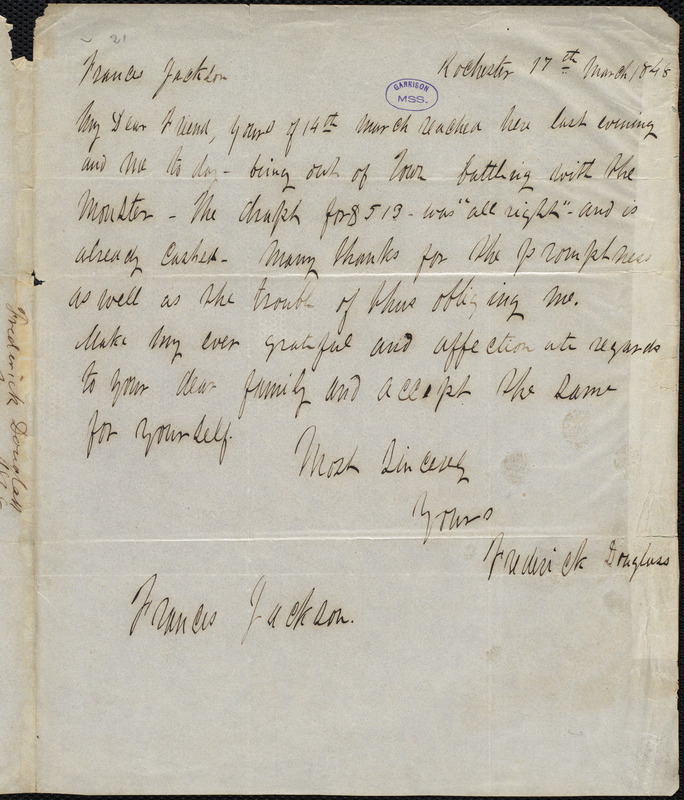 21
Francis Jackson
Rochester 17th March 1848
GARRISON
MSS.
My Dear Friend, Yours of 14th March reached here last evening
and me to day - being out of Town battling with the
Monster - The draft for $513 - was "all right" - and is
already cashed - Many thanks for the promptness
as well as the trouble of thus obliging me.
Make my ever grateful and affectionate regards
to your dear family and accept the same
for yourself.
Most Sincerely
Yours
Frederick Douglass
Francis Jackson.
Frederick Douglass